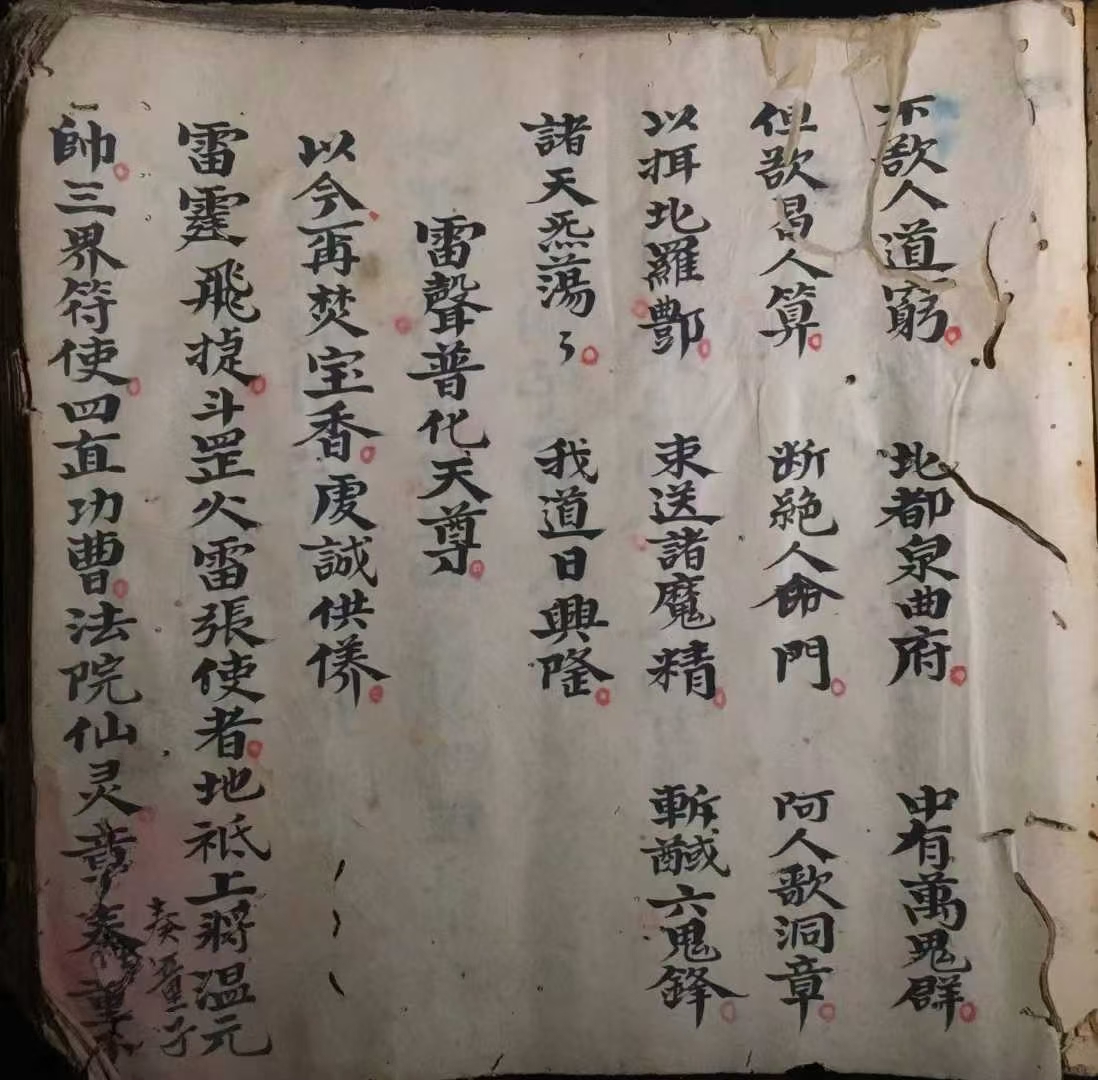 不欲人道窮 北都泉曲府 中有萬鬼群
但欲曷人算 断絶人命門 阿人歌洞章
以挕北羅酆 束送諸魔精 斬馘六鬼鋒
諸天炁蕩々 我道日興隆
雷聲普化天尊
以今再焚宝香虔誠供養
雷霆飛捷斗罡火雷張使者地祇上將温元
帥三界符使四直功曹法院仙灵章奏童
奏童子